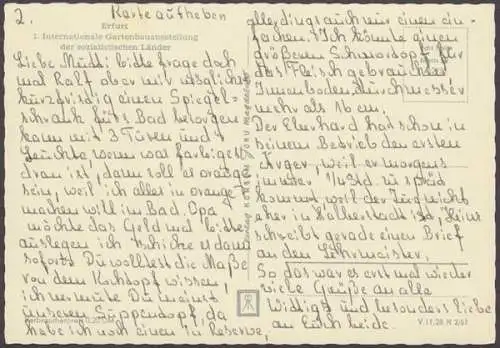 2. Karte aufheben
Erfurt
1. Internationale Gartenbauausstellung
der sozialistischen Länder
Liebe Mutti! bitte frage doch
mal Ralf ober mir möglichst
kurzfristig einen Spiegel-
schrank fürs Bad besorgen
kann mit 3 Türen und
Leuchte, wenn was farbiges
dran ist, dann soll es orange
sein, weil ich alles in orange
machen will im Bad. Opa
möchte das Geld mal bitte
auslegen ich schicke es dann
sofort. Du wolltest die Maße
von dem Kochtopf wissen,
ich vermute Du meinst
unseren Suppentopf, da
habe ich noch einen in Reserve,
allerdings auch nur einen ein-
fachen. Ich könnte einen
größeren Schmortopf für
das Fleisch gebrauchen
Innenbodendurchmesser
mehr als 16 cm.
Der Eberhard hat schon in
seinem Betrieb den ersten
Ärger, weil er morgens
immer 1/4 Std. zu spät
kommt weil der Zug nicht
eher in Halberstadt ist. Heinz
schreibt gerade einen Brief
an den Lehrmeister.
So das war es erst mal wieder
viele Grüße an alle
Wittigs und besonders liebe
an Euch beide.
V 11,28 N 2/61